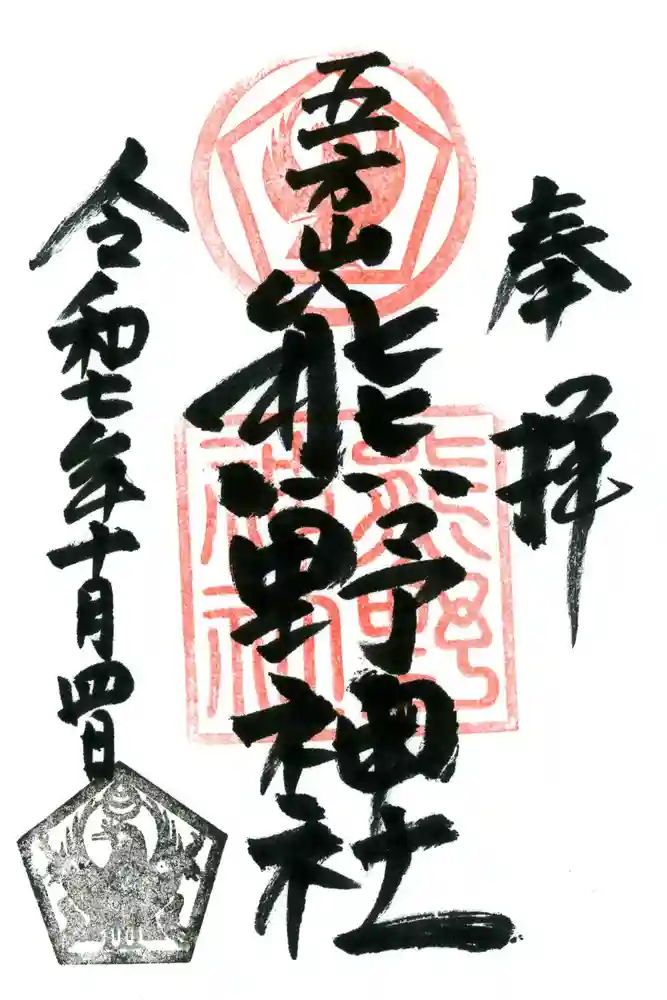 奉拝
五方山
熊野神社
令和七年十月四日
熊野
神社